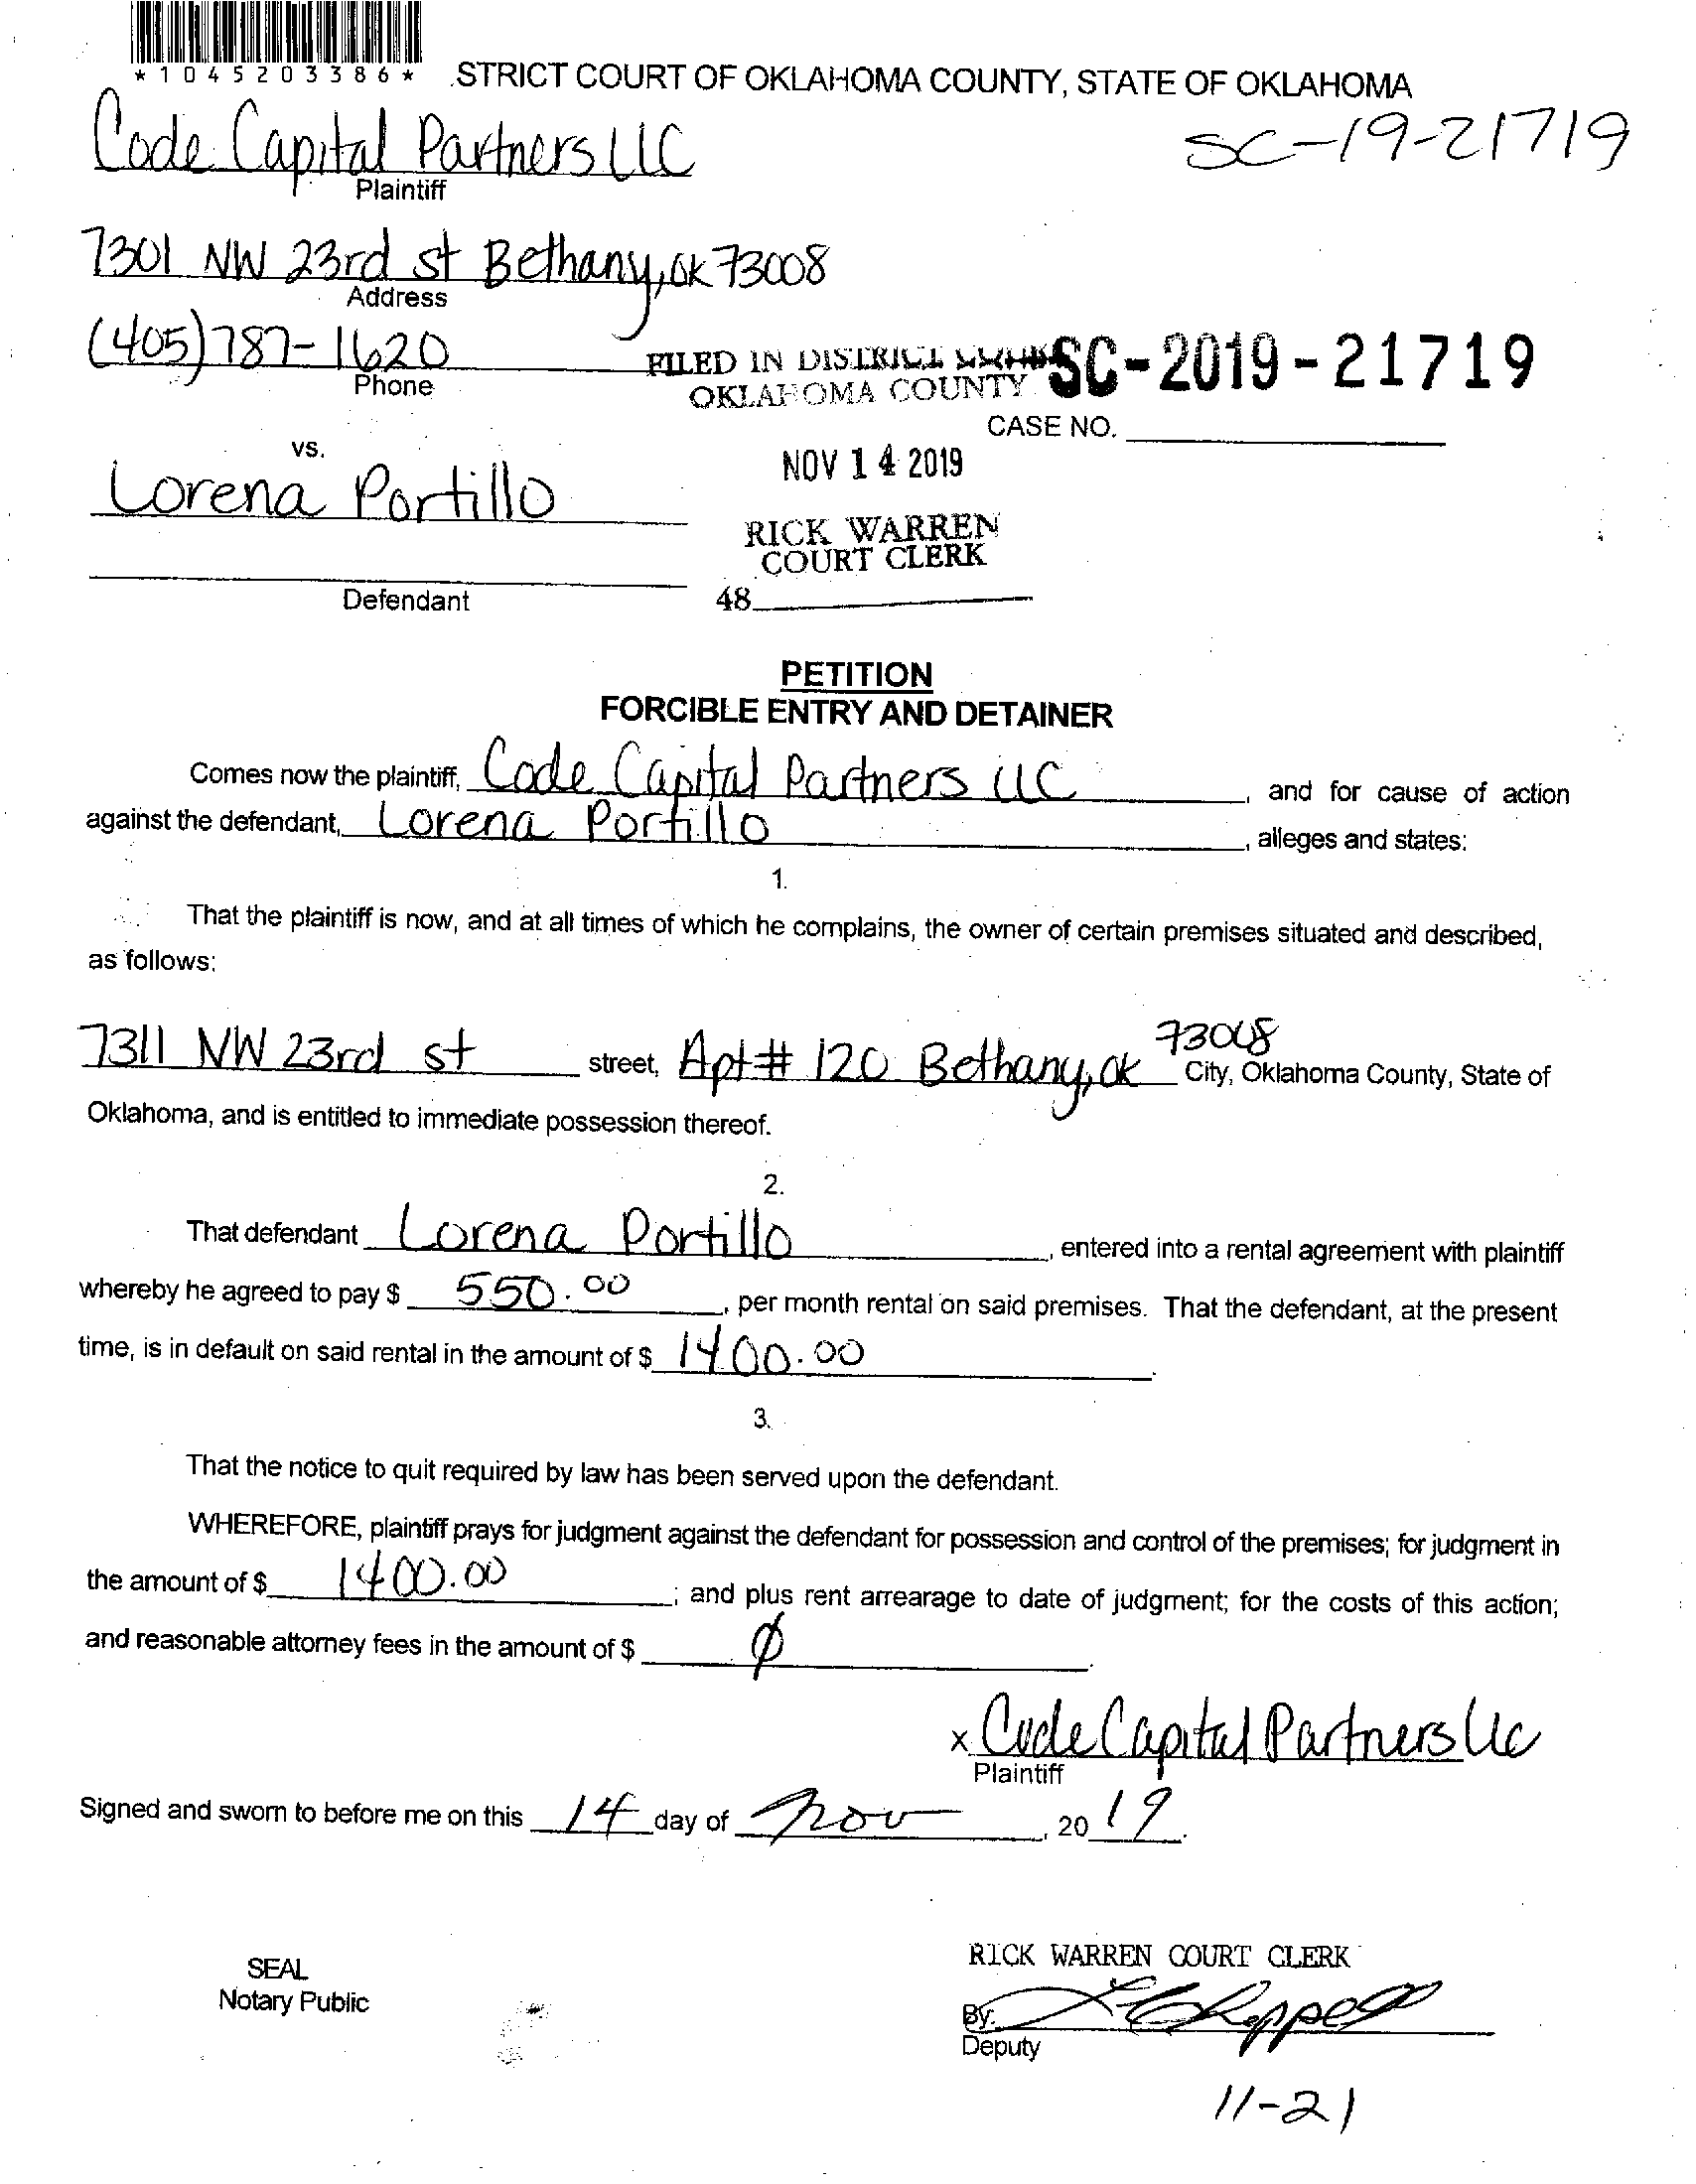 *1045203386*
.STRICT COURT OF OKLAHOMA COUNTY, STATE OF OKLAHOMA
Code Capital Partners LLC
SC-19-21719
Plaintiff
7301 NW 23rd st Bethany, OK 73008
Address
(405)787-1620
Phone
FILED IN DISTRICT
OKLAHOMA COUNTY
SC-2019-21719
CASE NO.
vs.
NOV 14 2019
Lorena Portillo
RICK WARREN
COURT CLERK
Defendant
48
PETITION
FORCIBLE ENTRY AND DETAINER
Comes now the plaintiff, Code Capital Partners LLC, and for cause of action
against the defendant, Lorena Portillo, alleges and states:
1.
That the plaintiff is now, and at all times of which he complains, the owner of certain premises situated and described,
as follows:
7311 NW 23rd st street, Apt# 120 Bethany, OK 73008 City, Oklahoma County, State of
Oklahoma, and is entitled to immediate possession thereof.
2.
That defendant Lorena Portillo, entered into a rental agreement with plaintiff
whereby he agreed to pay $ 550.00, per month rental on said premises. That the defendant, at the present
time, is in default on said rental in the amount of $ 1400.00.
3.
That the notice to quit required by law has been served upon the defendant.
WHEREFORE, plaintiff prays for judgment against the defendant for possession and control of the premises; for judgment in
the amount of $ 1400.00; and plus rent arrearage to date of judgment; for the costs of this action;
and reasonable attorney fees in the amount of $ ϕ.
x Code Capital Partners LLc
Plaintiff
Signed and sworn to before me on this 14 day of Nov, 2019.
SEAL
Notary Public
RICK WARREN COURT CLERK
By:
Deputy
11-21